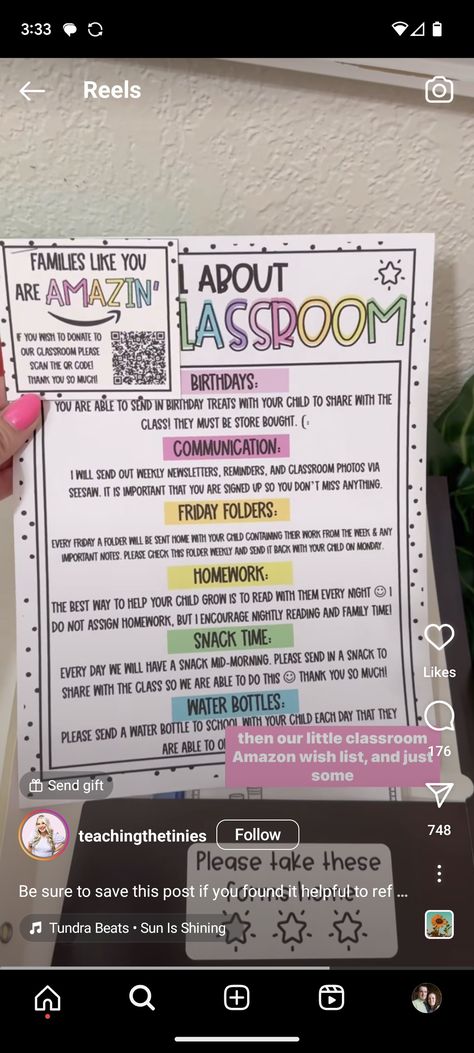 3:33
Reels
FAMILIES LIKE YOU
ARE AMAZIN'
IF YOU WISH TO DONATE TO
OUR CLASSROOM PLEASE
SCAN THE QR CODE!
THANK YOU SO MUCH!
L ABOUT
LASSROOM
BIRTHDAYS:
YOU ARE ABLE TO SEND IN BIRTHDAY TREATS WITH YOUR CHILD TO SHARE WITH THE
CLASS! THEY MUST BE STORE BOUGHT. (:
COMMUNICATION:
I WILL SEND OUT WEEKLY NEWSLETTERS, REMINDERS, AND CLASSROOM PHOTOS VIA
SEESAW. IT IS IMPORTANT THAT YOU ARE SIGNED UP SO YOU DON'T MISS ANYTHING.
FRIDAY FOLDERS:
EVERY FRIDAY A FOLDER WILL BE SENT HOME WITH YOUR CHILD CONTAINING THEIR WORK FROM THE WEEK & ANY
IMPORTANT NOTES. PLEASE CHECK THIS FOLDER WEEKLY AND SEND IT BACK WITH YOUR CHILD ON MONDAY.
HOMEWORK:
THE BEST WAY TO HELP YOUR CHILD GROW IS TO READ WITH THEM EVERY NIGHT ☺ I
DO NOT ASSIGN HOMEWORK, BUT I ENCOURAGE NIGHTLY READING AND FAMILY TIME!
SNACK TIME:
EVERY DAY WE WILL HAVE A SNACK MID-MORNING. PLEASE SEND IN A SNACK TO
SHARE WITH THE CLASS SO WE ARE ABLE TO DO THIS ☺ THANK YOU SO MUCH!
WATER BOTTLES:
PLEASE SEND A WATER BOTTLE TO SCHOOL WITH YOUR CHILD EACH DAY THAT THEY
ARE ABLE TO
then our little classroom
Amazon wish list, and just
some
Likes
176
748
Send gift
teachingthetinies
Follow
Please take these
forms home
Be sure to save this post if you found it helpful to ref ...
Tundra Beats • Sun Is Shining